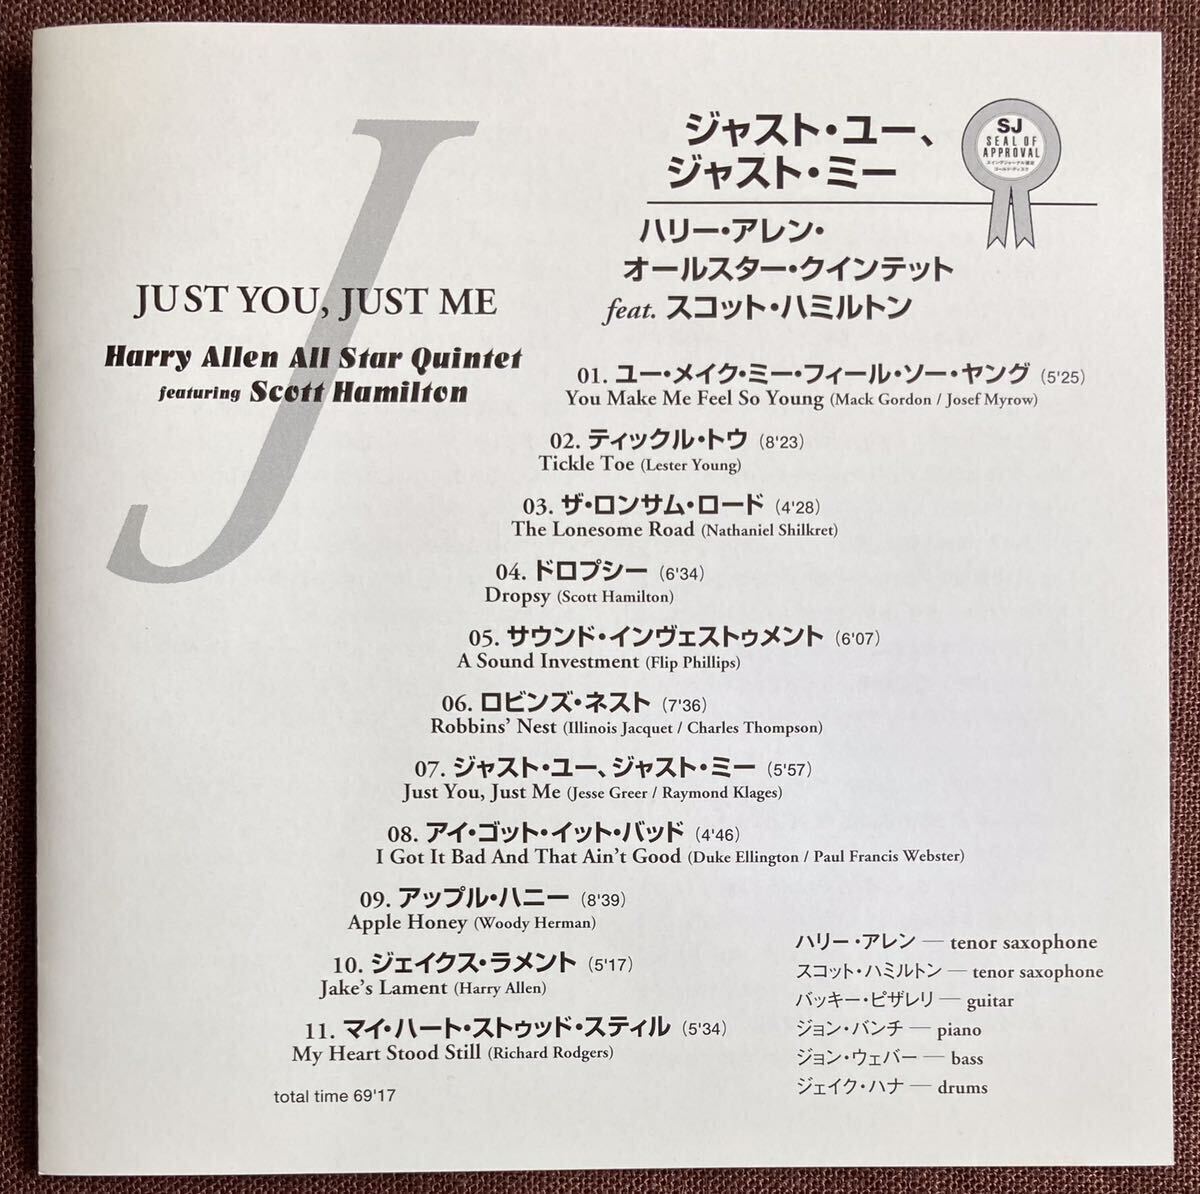 J
JUST YOU, JUST ME
Harry Allen All Star Quintet
featuring Scott Hamilton
ジャスト・ユー、
ジャスト・ミー
SJ
SEAL OF
APPROVAL
スイングジャーナル選定
ゴールド・ディスク
ハリー・アレン・
オールスター・クインテット
feat. スコット・ハミルトン
01. ユー・メイク・ミー・フィール・ソー・ヤング (5'25)
You Make Me Feel So Young (Mack Gordon / Josef Myrow)
02. ティックル・トウ (8'23)
Tickle Toe (Lester Young)
03. ザ・ロンサム・ロード (4'28)
The Lonesome Road (Nathaniel Shilkret)
04. ドロプシー (6'34)
Dropsy (Scott Hamilton)
05. サウンド・インヴェストゥメント (6'07)
A Sound Investment (Flip Phillips)
06. ロビンズ・ネスト (7'36)
Robbins' Nest (Illinois Jacquet / Charles Thompson)
07. ジャスト・ユー、ジャスト・ミー (5'57)
Just You, Just Me (Jesse Greer / Raymond Klages)
08. アイ・ゴット・イット・バッド (4'46)
I Got It Bad And That Ain't Good (Duke Ellington / Paul Francis Webster)
09. アップル・ハニー (8'39)
Apple Honey (Woody Herman)
10. ジェイクス・ラメント (5'17)
Jake's Lament (Harry Allen)
11. マイ・ハート・ストゥッド・スティル (5'34)
My Heart Stood Still (Richard Rodgers)
total time 69'17
ハリー・アレン — tenor saxophone
スコット・ハミルトン — tenor saxophone
バッキー・ピザレリ — guitar
ジョン・バンチ — piano
ジョン・ウェバー — bass
ジェイク・ハナ — drums